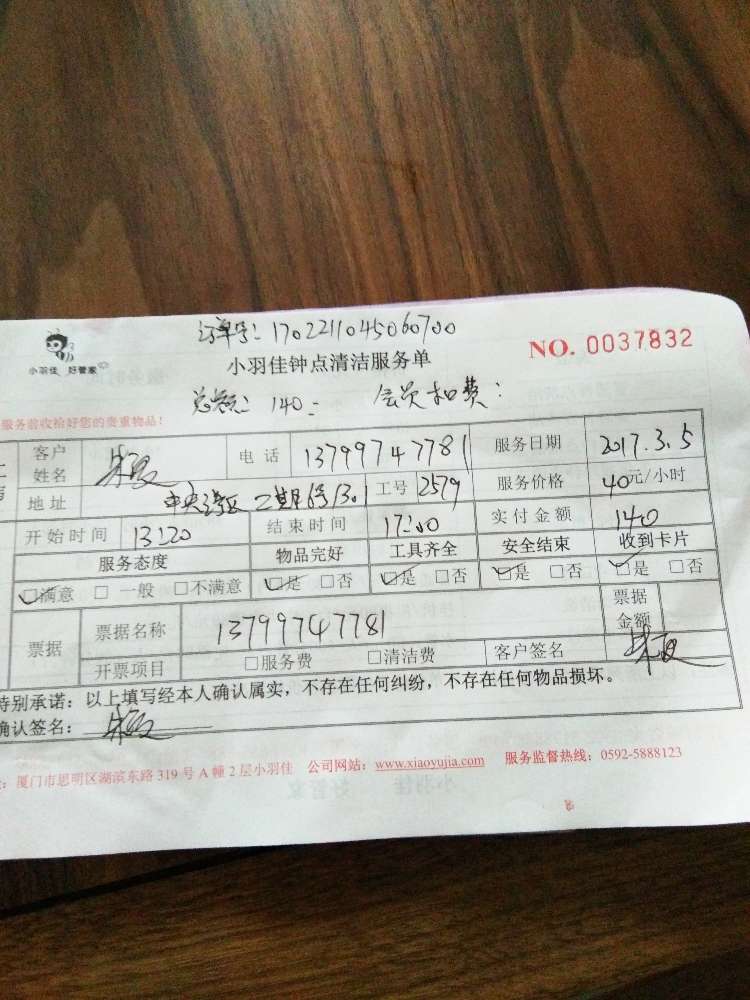 订单号: 1702211045060700
小羽佳 好管家
小羽佳钟点清洁服务单
NO. 0037832
总额: 140.- 会员扣费:
服务前收拾好您的贵重物品!
客户姓名 电话 13799747781 服务日期 2017.3.5
地址 中央湾区二期6号1301 工号 2579 服务价格 40元/小时
开始时间 13:20 结束时间 17:00 实付金额 140
服务态度 物品完好 工具齐全 安全结束 收到卡片
☑满意 □一般 □不满意 ☑是 □否 ☑是 □否 ☑是 □否 ☑是 □否
票据 票据名称 13799747781 票据金额
开票项目 □服务费 □清洁费 客户签名
特别承诺:以上填写经本人确认属实,不存在任何纠纷,不存在任何物品损坏。
确认签名:
厦门市思明区湖滨东路 319 号 A 幢 2 层小羽佳 公司网站:www.xiaoyujia.com 服务监督热线:0592-5888123